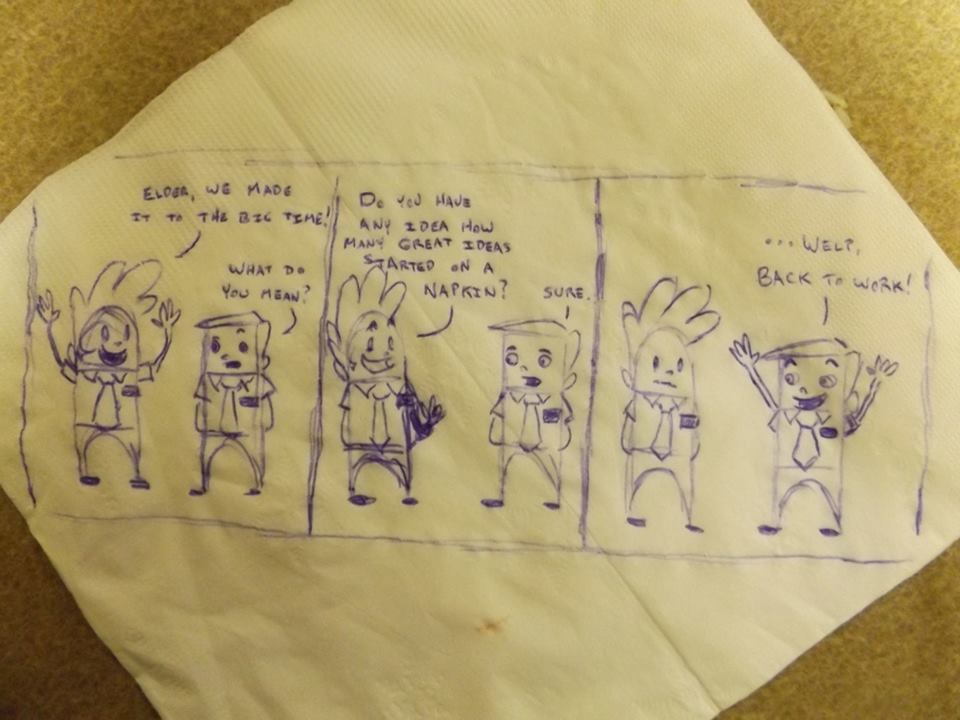 ELDER, WE MADE
IT TO THE BIG TIME!
WHAT DO
YOU MEAN?
DO YOU HAVE
ANY IDEA HOW
MANY GREAT IDEAS
STARTED ON A
NAPKIN?
SURE.
... WELP,
BACK TO WORK!